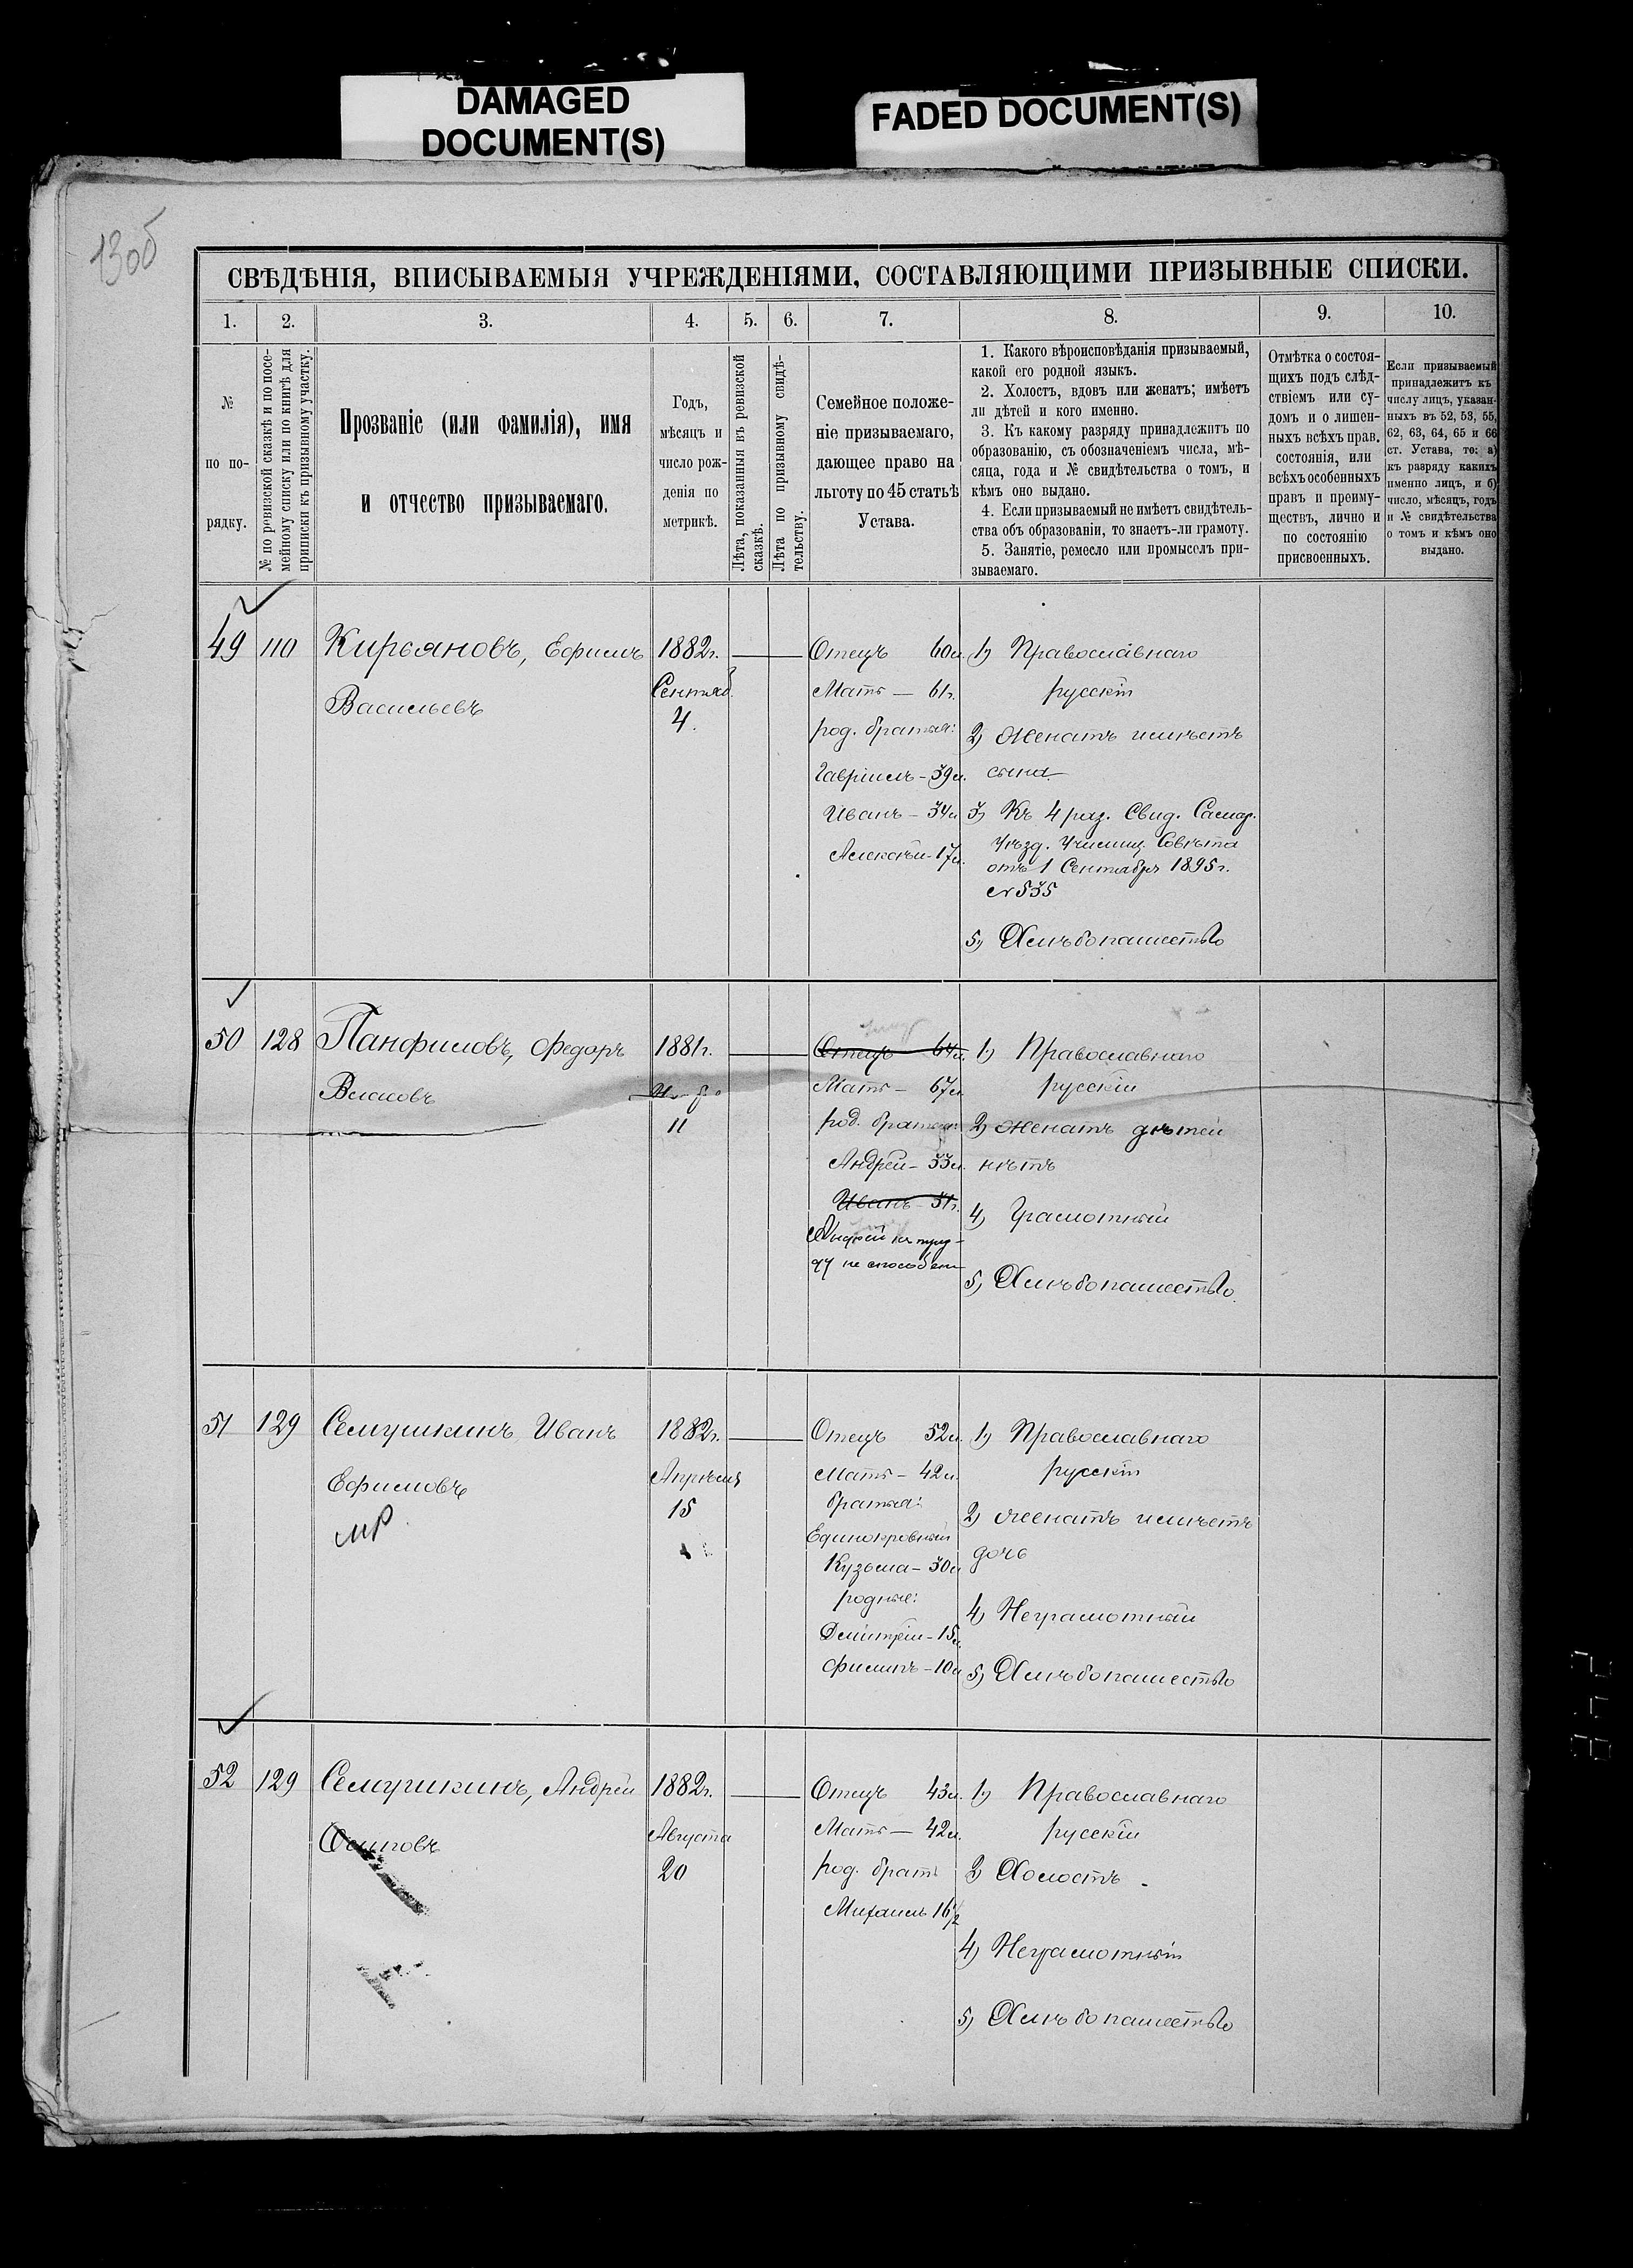 DAMAGED
DOCUMENT(S)
FADED DOCUMENT(S)
130б
СВѢДѢНІЯ, ВПИСЫВАЕМЫЯ УЧРЕЖДЕНІЯМИ, СОСТАВЛЯЮЩИМИ ПРИЗЫВНЫЕ СПИСКИ.
1. 2. 3. 4. 5. 6. 7. 8. 9. 10.
№
по по-
рядку.
№ по ревизской сказкѣ и по посе-
мейному списку или по книгѣ для
приписки къ призывному участку.
Прозваніе (или фамилія), имя
и отчество призываемаго.
Годъ,
мѣсяцъ и
число рож-
денія по
метрикѣ.
Лѣта, показанныя въ ревизской
сказкѣ.
Лѣта по призывному свидѣ-
тельству.
Семейное положе-
ніе призываемаго,
дающее право на
льготу по 45 статьѣ
Устава.
1. Какого вѣроисповѣданія призываемый,
какой его родной языкъ.
2. Холостъ, вдовъ или женатъ; имѣетъ
ли дѣтей и кого именно.
3. Къ какому разряду принадлежитъ по
образованію, съ обозначеніемъ числа, мѣ-
сяца, года и № свидѣтельства о томъ, и
кѣмъ оно выдано.
4. Если призываемый не имѣетъ свидѣтель-
ства объ образованіи, то знаетъ-ли грамоту.
5. Занятіе, ремесло или промыселъ при-
зываемаго.
Отмѣтка о состоя-
щихъ подъ слѣд-
ствіемъ или су-
домъ и о лишен-
ныхъ всѣхъ прав.
состоянія, или
всѣхъ особенныхъ
правъ и преиму-
ществъ, лично и
по состоянію
присвоенныхъ.
Если призываемый
принадлежитъ къ
числу лицъ, указан-
ныхъ въ 52, 53, 55,
62, 63, 64, 65 и 66
ст. Устава, то: а)
къ разряду какихъ
именно лицъ, и б)
число, мѣсяцъ, годъ
и № свидѣтельства
о томъ и кѣмъ оно
выдано.
49 110 Кирсановъ, Ефимъ
Васильевъ
1882г.
Сентяб.
4.
Отецъ 60л.
Мать — 61г.
род. братья:
Гавріилъ - 39л.
Иванъ - 34л
Алексѣй - 17л.
1) Православнаго
русскій
2) Женатъ имѣетъ
сына
3) Къ 4 раз. Свид. Самар.
Уѣзд. Училищ. Совѣта
отъ 1 Сентября 1895г.
№ 535
5) Хлѣбопашество
50 128 Панфиловъ, Федоръ
Власовъ
1881г.
11
Отецъ 64л.
Мать — 67л
род. братья:
Андрей - 33л.
Иванъ - 31г.
Андрей къ тру-
ду не способенъ
1) Православнаго
русскій
2) Женатъ дѣтей
нѣтъ
4) Грамотный
5) Хлѣбопашество.
51 129 Семушкинъ Иванъ
Ефимовъ
1882г.
Апрѣля
15
Отецъ 52л.
Мать - 42л.
братья:
Единокровный
Кузьма - 30л
родные:
Дмитрій - 15л.
Филипъ - 10л
1) Православнаго
русскій
2) Женатъ имѣетъ
дочь
4) Неграмотный
5) Хлѣбопашество
52 129 Семушкинъ, Андрей
Осиповъ
1882г.
Августа
20
Отецъ 43л.
Мать — 42л.
род. братъ
Михаилъ 16½
1) Православнаго
русскій
2) Холостъ.
4) Неграмотный
5) Хлѣбопашество